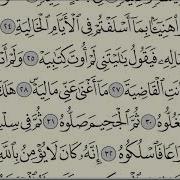 هَنِيٓـَٔۢا بِمَآ أَسۡلَفۡتُمۡ فِي ٱلۡأَيَّامِ ٱلۡخَالِيَةِ ٢٤
مَالِهِۦ فَيَقُولُ يَٰلَيۡتَنِي لَمۡ أُوتَ كِتَٰبِيَهۡ ٢٥ وَلَمۡ أَدۡرِ
نَتِ ٱلۡقَاضِيَةَ ٢٧ مَآ أَغۡنَىٰ عَنِّي مَالِيَهۡۜ ٢٨ هَلَكَ
غُلُّوهُ ٣٠ ثُمَّ ٱلۡجَحِيمَ صَلُّوهُ ٣١ ثُمَّ فِي سِلۡ
عٗا فَٱسۡلُكُوهُ ٣٢ إِنَّهُۥ كَانَ لَا يُؤۡمِنُ بِٱللَّهِ